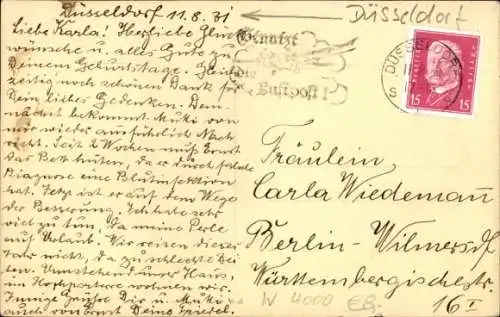 Düsseldorf 11.8.31
Düsseldorf
Liebe Karla! Herzliche Glück-
wünsche u. alles Gute zu
Deinem Geburtstage. Gleich-
zeitig noch schönen Dank für
Dein liebes Gedenken. Dem-
nächst bekommt Mutti von
mir wieder ausführlich Nach-
richt. Seit 2 Wochen muß Ernst
das Bett hüten, da er durch falsche
Diagnose eine Blutinfektion
hat. Jetzt ist er auf dem Wege
der Besserung. Ich habe sehr
viel zu tun, da meine Perle
auf Urlaub. Wir reisen dieses
Jahr nicht, da zu schlechte Zei-
ten. Umstehend unser Haus,
im Hochparterre wohnen wir.
Innige Grüße Dir u. Mutti
auch von Ernst Deine
Benutzt
die
Luftpost!
DÜSSELDORF
15 15
Fräulein
Carla Wiedemann
Berlin-Wilmersdf
Württembergischestr.
16 I
IV 4000 €8.-